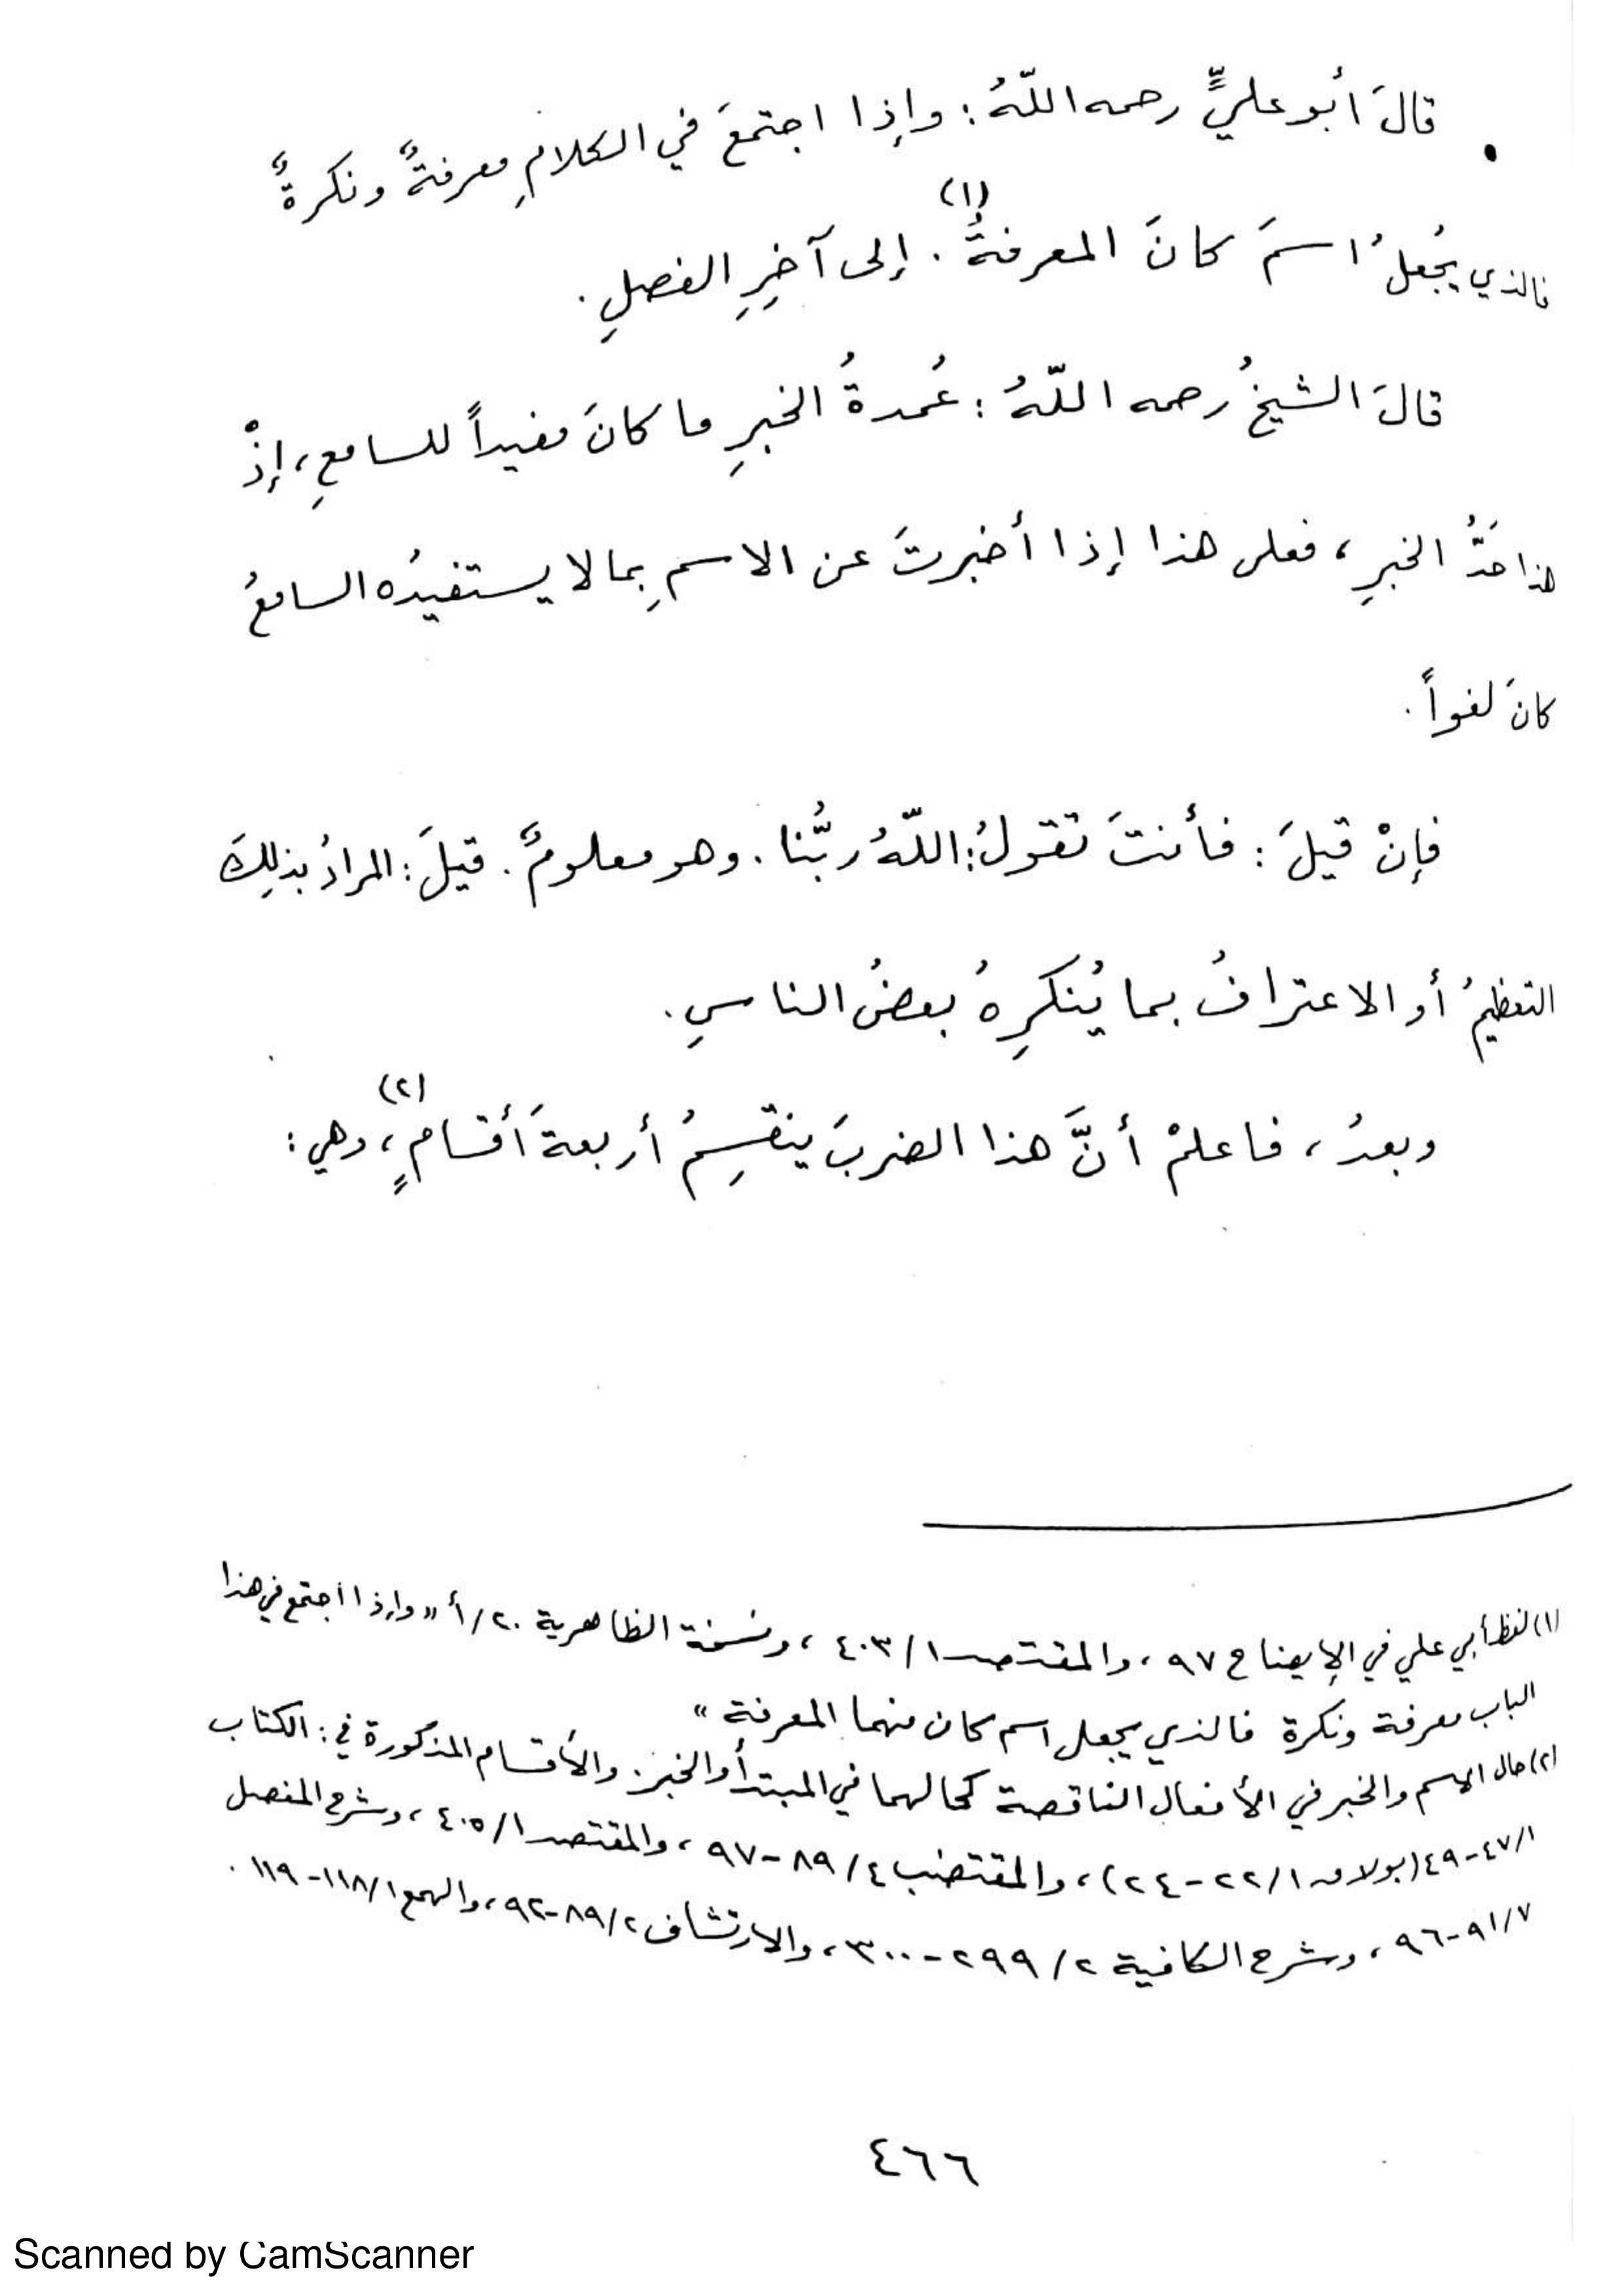 • قالَ أبو عليٍّ رحمه اللّهُ : وإذا اجتمعَ في الكلامِ معرفةٌ ونكرةٌ
فالذي يُجعلُ اسمَ كانَ المعرفةُ (١) . إلى آخِرِ الفصلِ .
قالَ الشيخُ رحمه اللّهُ : عُمدةُ الخبرِ ما كانَ مفيداً للسامعِ ، إذْ
هذا حَدُّ الخبرِ ، فعلى هذا إذا أخبرتَ عن الاسمِ بما لا يستفيدُه السامعُ
كانَ لغواً .
فإنْ قيلَ : فأنتَ تقولُ : اللّهُ ربُّنا . وهو معلومٌ . قيلَ : المرادُ بذلِكَ
التعظيمُ أو الاعترافُ بما يُنكرِهُ بعضُ الناسِ .
وبعدُ ، فاعلمْ أنَّ هذا الضربَ ينقسِمُ أربعةَ أقسامٍ (٢) ، وهي :
(١) لفظ أبي علي في الإيضاح ٩٧ ، والمقتصد ١/ ٤٠٣ ، ونسخة الظاهرية ٢٠/أ " وإذا اجتمع في هذا
الباب معرفة ونكرة فالذي يجعل اسم كان منهما المعرفة "
(٢) حال الاسم والخبر في الأفعال الناقصة كحالهما في المبتدأ والخبر . والأقسام المذكورة في : الكتاب
١/ ٤٧-٤٩ (بولاق ١/ ٢٢-٢٤) ، والمقتضب ٤/ ٨٩-٩٧ ، والمقتصد ١/ ٤٠٥ ، وشرح المفصل
٧/ ٩١-٩٦ ، وشرح الكافية ٢/ ٢٩٩-٣٠٠ ، والارتشاف ٢/ ٨٩-٩٢ ، والهمع ١/ ١١٨-١١٩ .
٤٦٦
Scanned by CamScanner